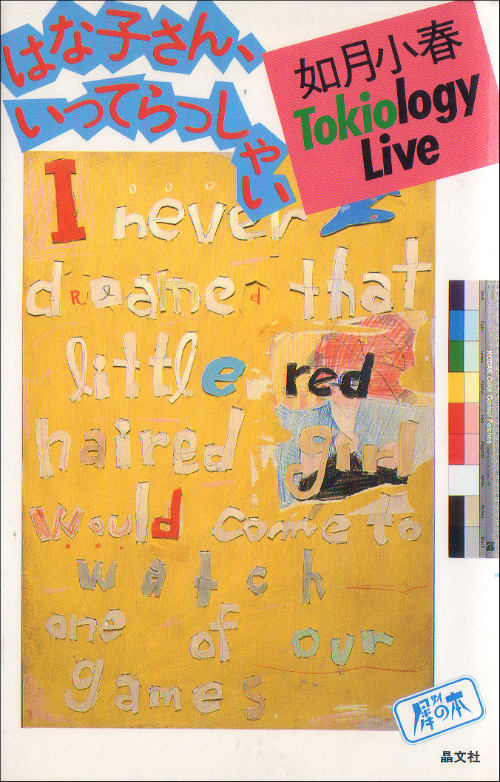 はな子さん、
いってらっしゃい
如月小春
Tokiology
Live
I never
dreamed that
little red
haired girl
would come to
watch
one of our
games
犀の本
サイ
晶文社